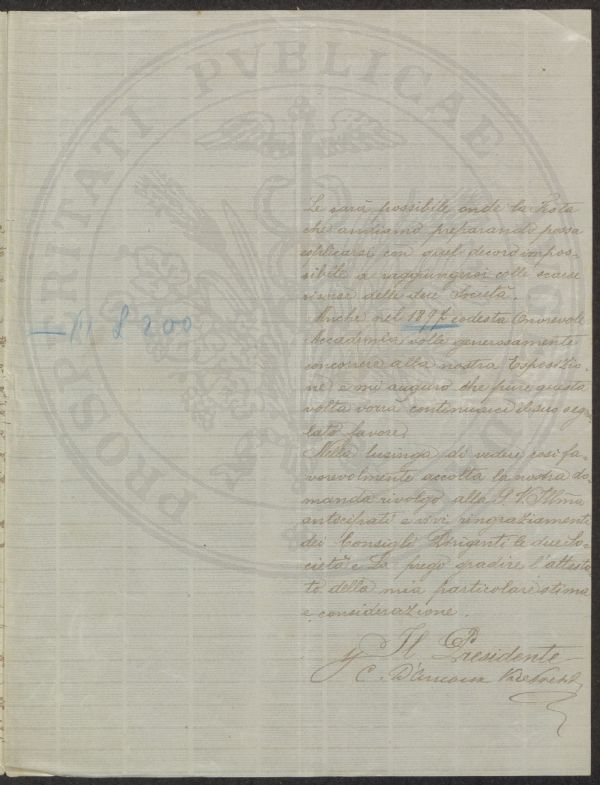 PROSPERITATI PVBLICAE
Le sarà possibile onde la Festa
che andiamo preparando possa
esplicarsi con quel decoro impos-
sibile a raggiungersi colle scarse
risorse delle due Società.
Anche nel 1897 codesta Onorevole
Accademia volle generosamente
concorrere alla nostra Esposizio-
ne e mi auguro che pure questa
volta vorrà il suo
favore.
Nella lusinga di vedere così fa-
vorevolmente accolta la nostra do-
manda rivolgo alla S. V. Illma
anticipati e vivi ringraziamenti
dei Consigli Dirigenti le due So-
cietà e La prego gradire l'attesta-
to della mia particolare stima
e considerazione.
Il Presidente
C. D'Ancona